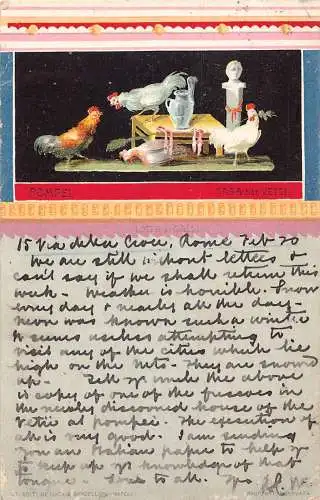 POMPEI
CASA DEI VETTI
15 Via della Croce, Rome Feb 20
We are still without letters &
can't say if we shall return this
week - Weather is horrible. Snow
every day & nearly all the day -
never was known such a winter
It seems useless attempting to
visit any of the cities which lie
high on the Mts. They are snowed
up. Tell yr uncle the above
is copy of one of the frescoes in
the newly discovered house of the
Vetii at Pompeii. The execution
of all is very good. I am sending
you an Italian paper to help yr
to keep up yr knowledge of that
tongue. Love to all.